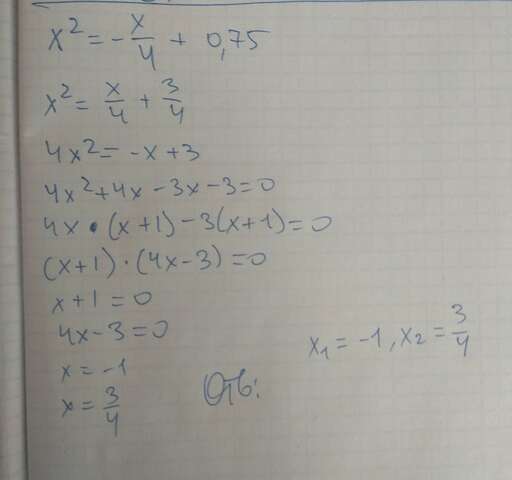 x² = -x/4 + 0,75
x² = x/4 + 3/4
4x² = -x+3
4x²+4x-3x-3=0
4x·(x+1)-3(x+1)=0
(x+1)·(4x-3)=0
x+1=0
4x-3=0
x=-1
x=3/4
Отв: x₁=-1, x₂=3/4